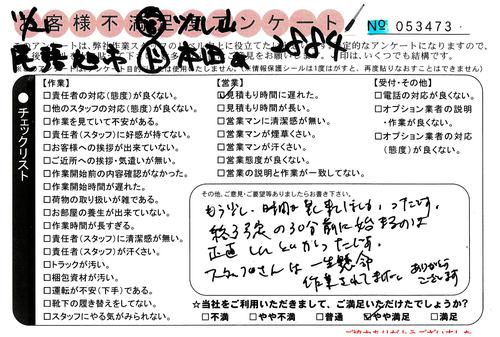 客様不満足アンケート
№ 053473
チェックリスト
【作業】
□責任者の対応(態度)が良くない。
□他のスタッフの対応(態度)が良くない。
□作業を見ていて不安がある。
□責任者(スタッフ)に好感が持てない。
□お客様への挨拶が出来ていない。
□ご近所への挨拶・気遣いが無い。
□作業開始前の内容確認がなかった。
□作業開始時間が遅れた。
□荷物の取り扱いが雑である。
□お部屋の養生が出来ていない。
□作業時間が長すぎる。
□責任者(スタッフ)に清潔感が無い。
□責任者(スタッフ)が汗くさい。
□トラックが汚い。
□梱包資材が汚い。
□運転が不安(下手)である。
□靴下の履き替えをしてない。
□スタッフにやる気がみられない。
【営業】
見積もり時間に遅れた。
□見積もり時間が長い。
□営業マンに清潔感が無い。
□営業マンが煙草くさい。
□営業マンが汗くさい。
□営業態度が良くない。
□営業の説明と作業が一致してない。
【受付・その他】
□電話の対応が良くない。
□オプション業者の説明
・作業が良くない。
□オプション業者の対応
(態度)が良くない。
その他、ご意見・ご要望等ありましたらお書き下さい。
もう少し、時間を
終了予定の30分前に始まるのは
正直しんどかったです。
スタッフさんは一生懸命
作業されてました
ありがとう
ございます
☆当社をご利用いただきまして、ご満足いただけたでしょうか?
□不満 □やや不満 □普通 ☑やや満足 □満足
ご協力ありがとうございました